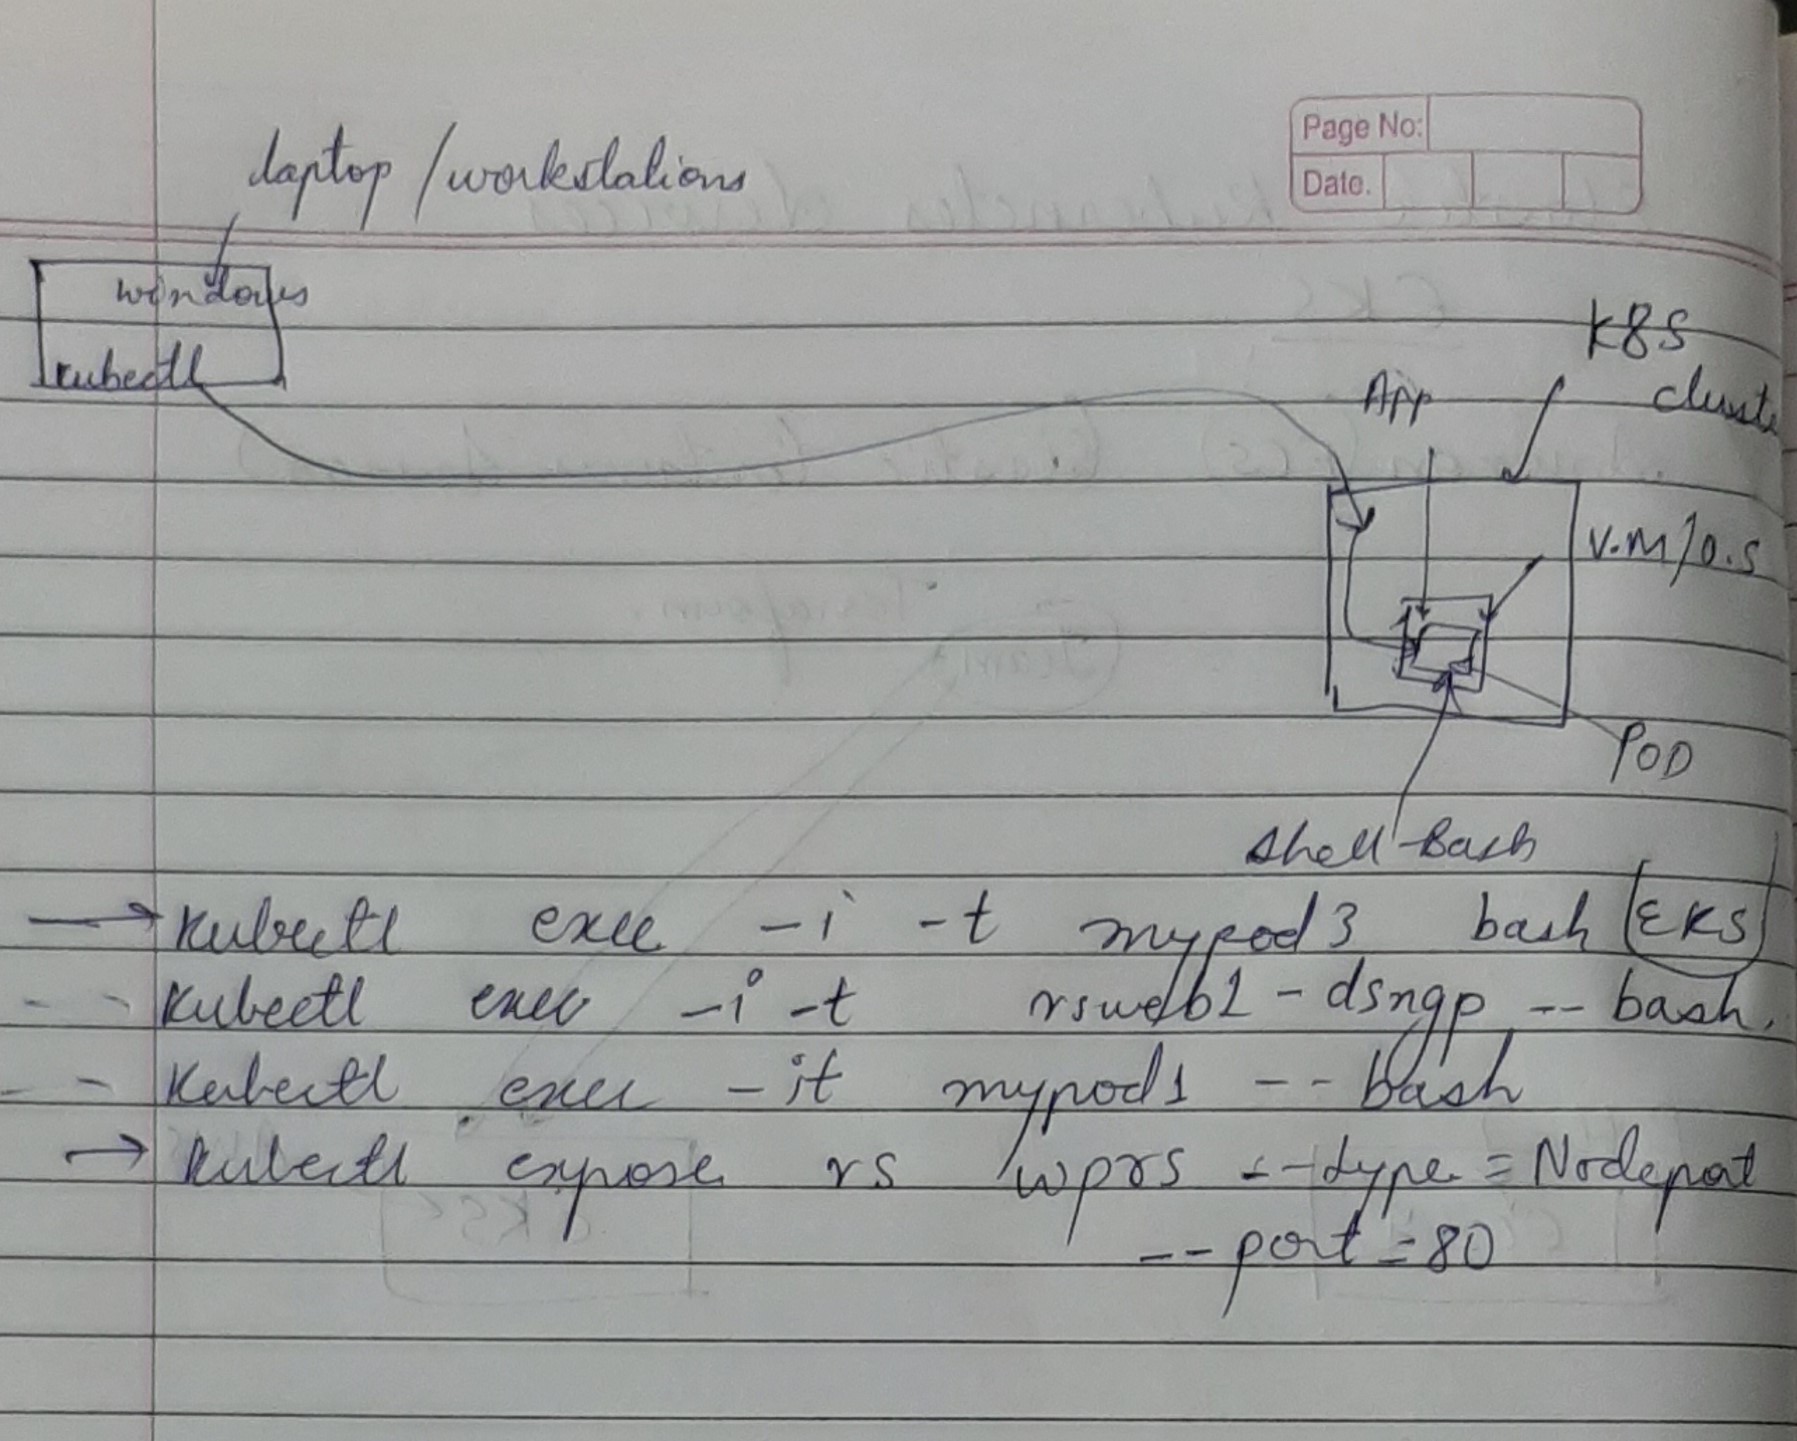 Page No:
Date.
laptop / workstations
windows
kubectl
K8S
cluste
App
V.M/O.S
POD
shell Bash
→ kubectl exec -i -t mypod3 bash (EKS)
-- kubectl exec -i -t rsweb1 - dsngp -- bash.
-- kubectl exec -it mypod1 -- bash
→ kubectl expose rs wprs --type = Nodeport
-- port = 80